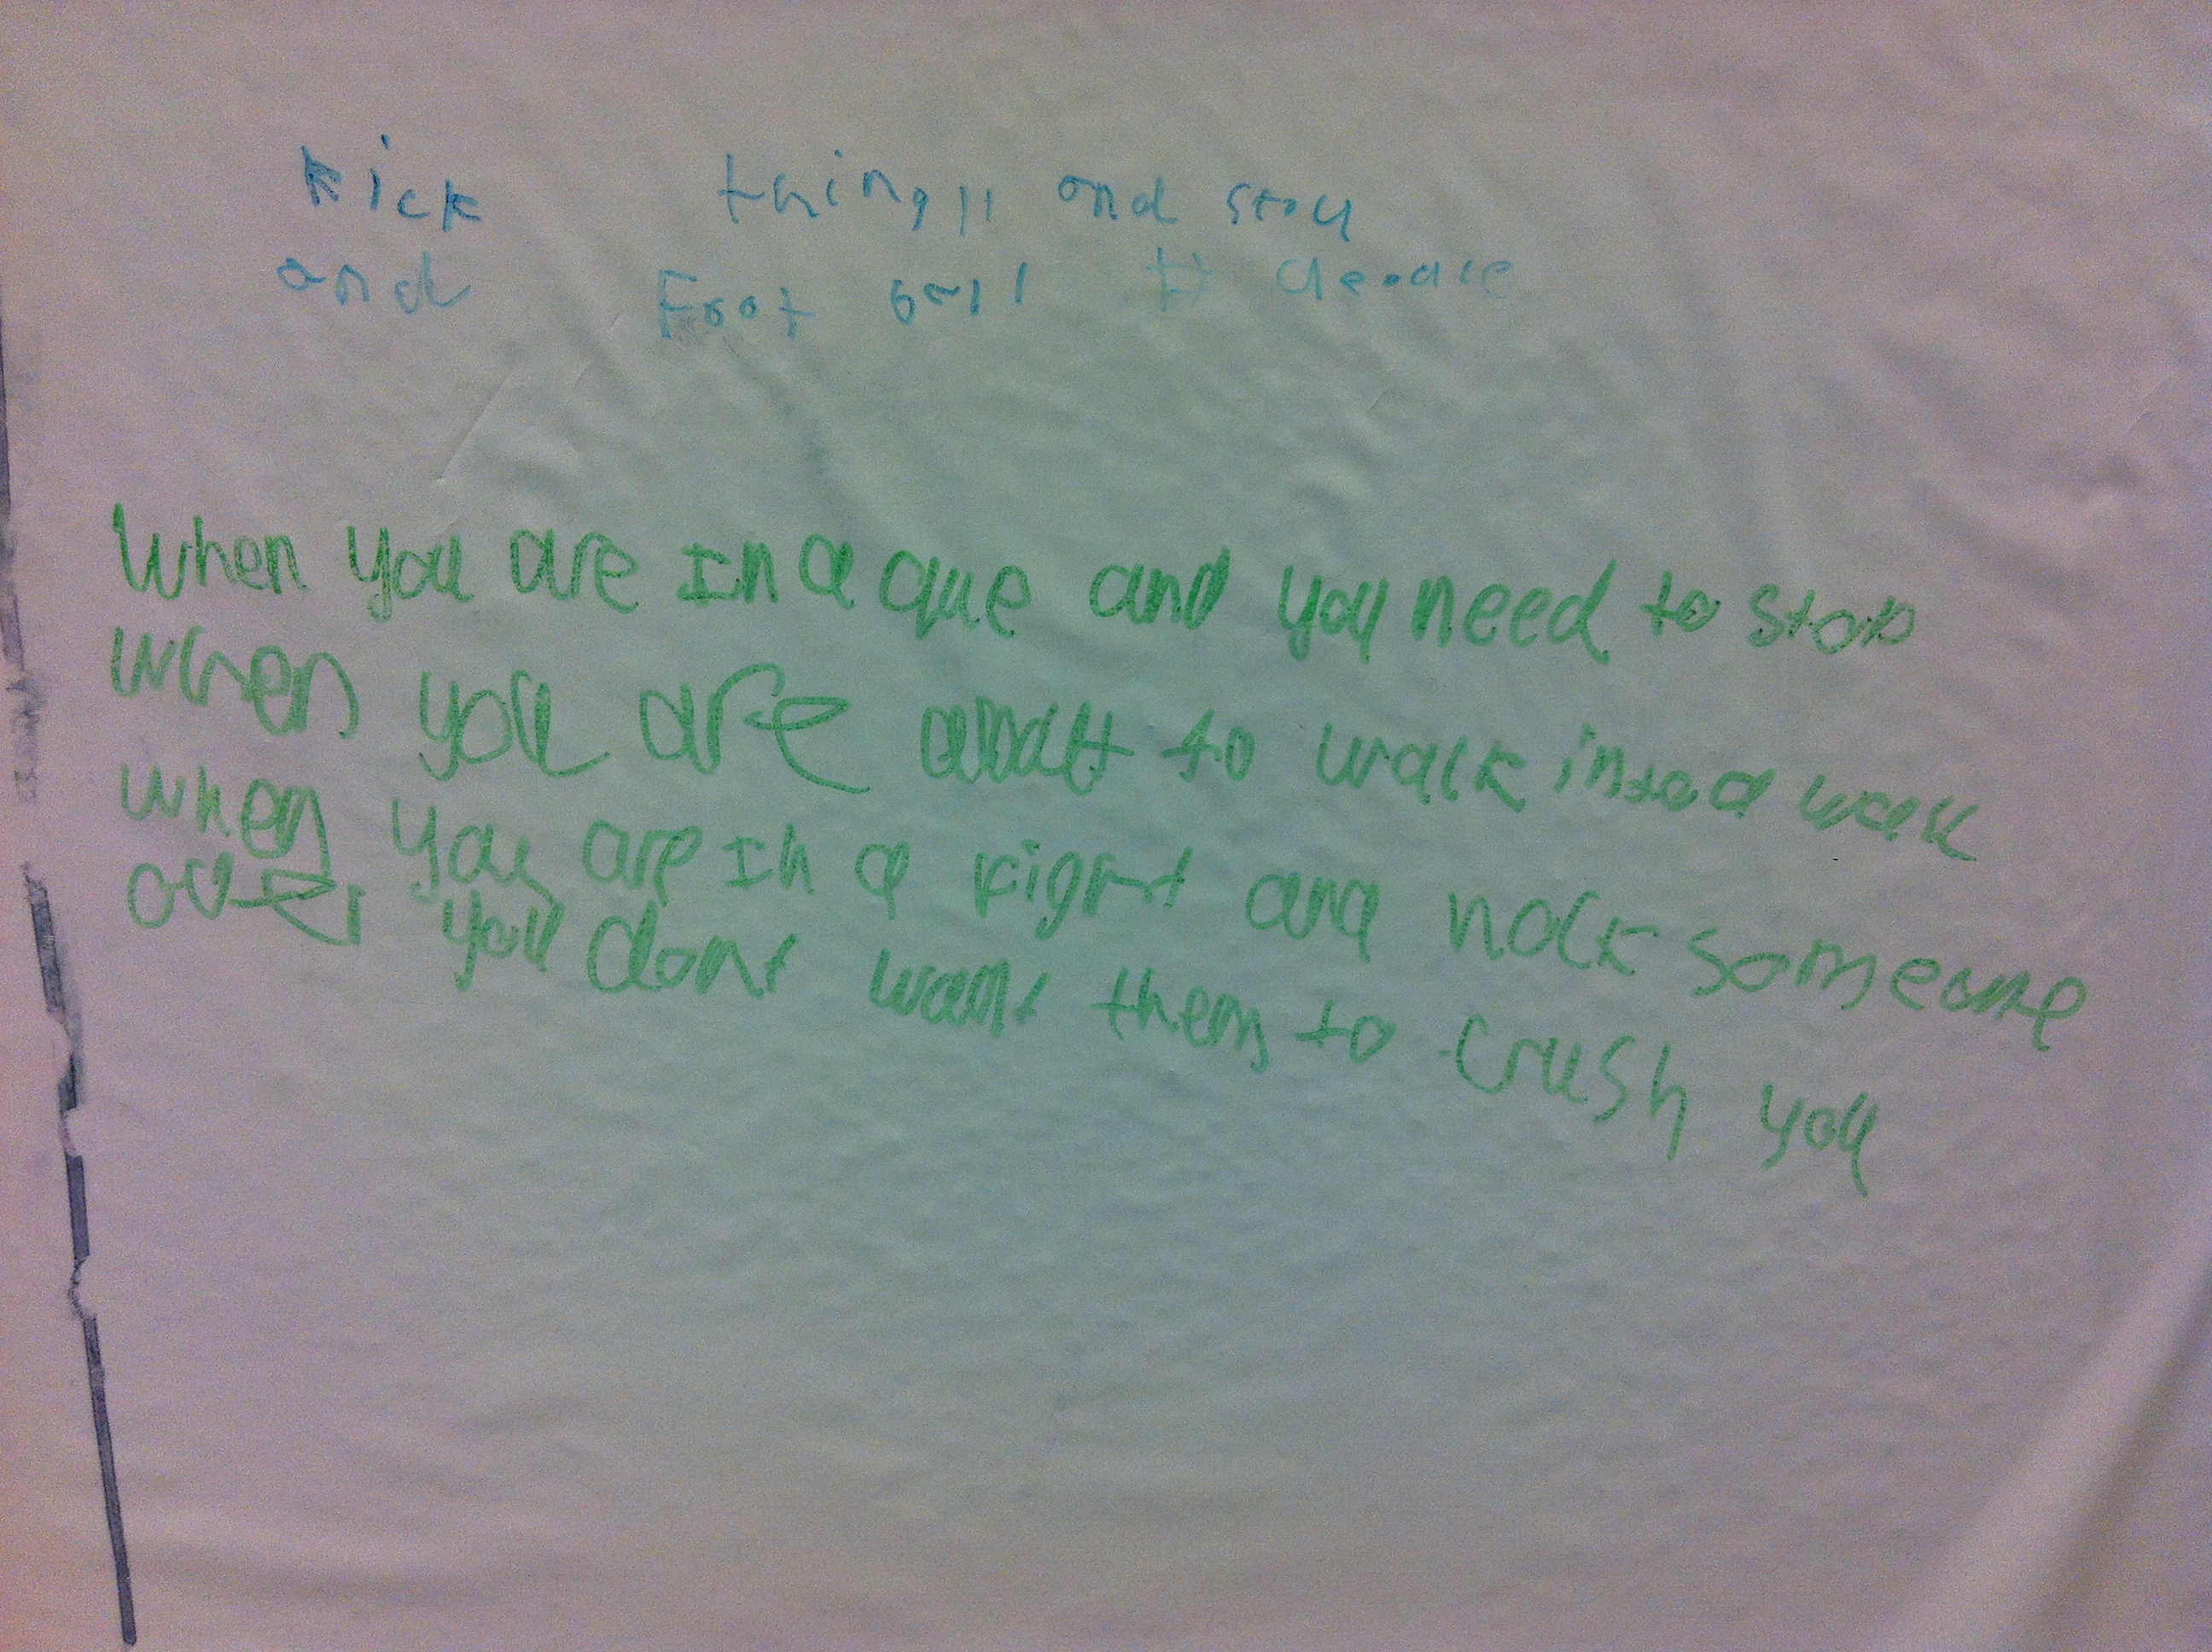 kick things and
and Foot ball
When you are in a que and you need to stop
when you are to walk into a wall
when you are in a fight and nock someone
over you dont want them to crush you